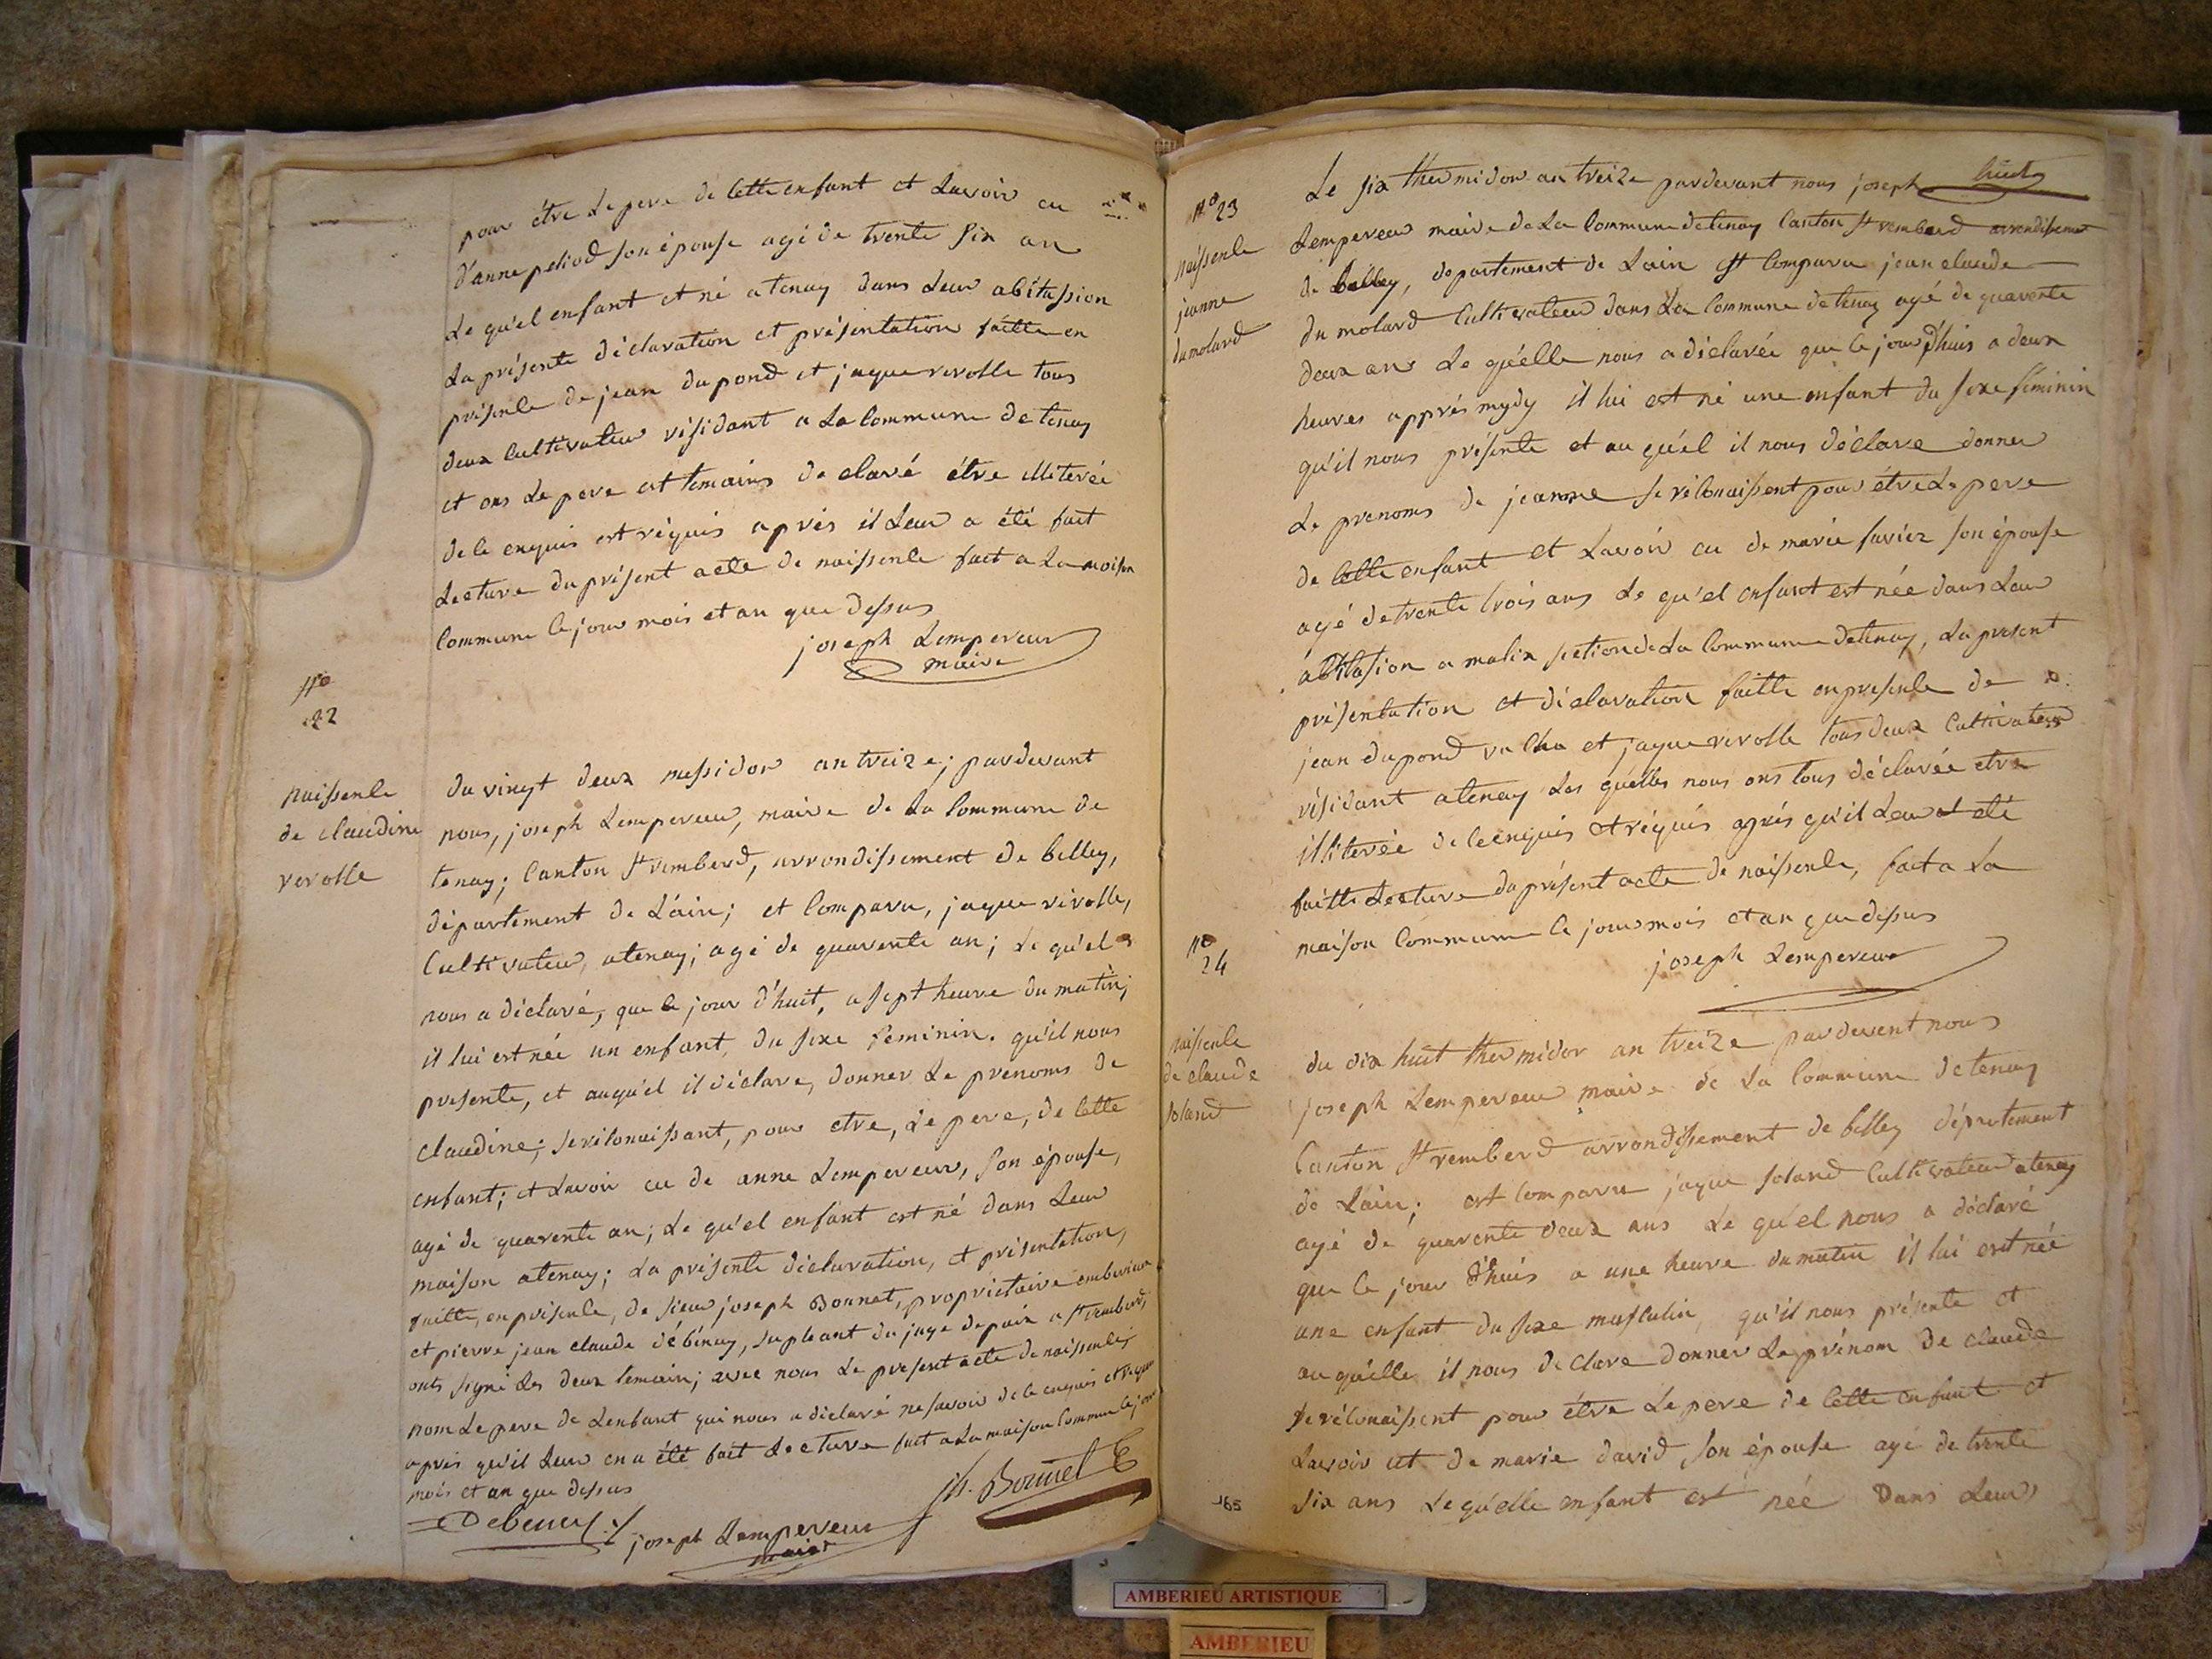 pour être le pere de cette enfant et lavoir eu
d'anne peliod son épouse agé de trente six an
le qu'el enfant et né a tenay dans leur abitassion
la présente déclaration et présentation faitte en
présence de jean dupond et jaque revolle tous
deux cultivateur résidant a la commune de tenay
et ons le pere et temoins de claré étre illiterée
de ce enquis et réquis aprés il leur a été fait
lecture du présent acte de naissence fait a la maison
commune le jour mois et an que dessus
joseph Lempereur
maire
No
22
naissence
de claudine
revolle
du vingt deux messidor an treize; pardevant
nous, joseph Lempereur, maire de la commune de
tenay; canton st remberd, arrondissement de belley,
département de l'ain; et comparu, jaque revolle,
cultivateur, atenay; agé de quarente an; le qu'el
nous a déclaré, que le jour d'huit, a sept heure du matin;
il lui est née un enfant, du sexe feminin. qu'il nous
presente, et auqu'el il déclare, donner le prenoms de
claudine; se réconaissant, pour etre, le pere, de cette
enfant; et lavoir eu de anne Lempereur, son épouse,
agé de quarente an; le qu'el enfant est né dans leur
maison atenay; la présente déclaration, et présentation,
faitte, en présence, de sieur joseph Bonnet, proprietaire
et pierre jean claude débénay, supleant du juge depaix a st rambert,
onts signé les deux temoin; avec nous le present acte de naissence
nom le pere de lenfant qui nous a déclaré ne savoir de ce enquis et requis
aprés qu'il leur en a été fait lecture fait a la maison commune le jour
mois et an que dessus
Debeney
joseph Lempereur
maire
Jh. Bonnet
No 23
naissence
jeanne
dumolard
Le six thermidor an treize pardevant nous joseph
Lempereur maire de la commune de tenay canton st remberd arrondissement
de belley, departement de Lain est comparu jean claude
du molard cultivateur dans la commune de tenay agé de quarente
deux ans le qu'elle nous a déclarée que le jour d'huis a deux
heures apprés mydy il lui est né une enfant du sexe féminin
qu'il nous présente et au qu'el il nous déclare donner
le prenoms de jeanne se réconaissent pour étre le pere
de cette enfant et lavoir eu de marie savier son épouse
agé de trente trois ans le qu'el enfant est née dans leur
abitasion a malix section de la commune de tenay, la present
présentation et déclaration faitte en presence de
jean dupond et jaque revolle tous deux cultivateur
résidant atenay les quélles nous ons tous déclarée etre
illiterée de ce enquis et réquis aprés qu'il leur et été
faitte lecture du présent acte de naissence, fait a la
maison commune le jour mois et an que dessus
joseph Lempereur
No
24
naissence
de claude
soland
du dix huit thermidor an treize pardevent nous
joseph Lempereur maire de la commune de tenay
canton st remberd arrondissement de belley département
de Lain; est comparu jaque soland cultivateur atenay
agé de quarente deux ans le qu'el nous a déclaré
que le jour d'huis a une heure du matin il lui est née
une enfant du sexe masculin, qu'il nous présente et
auquélle il nous declare donner le prénom de claude
se réconaissent pour étre le pere de cette enfant et
lavoir ut de marie david son épouse agé de trente
six ans le quélle enfant est née dans leur
165
AMBERIEU ARTISTIQUE
AMBERIEU